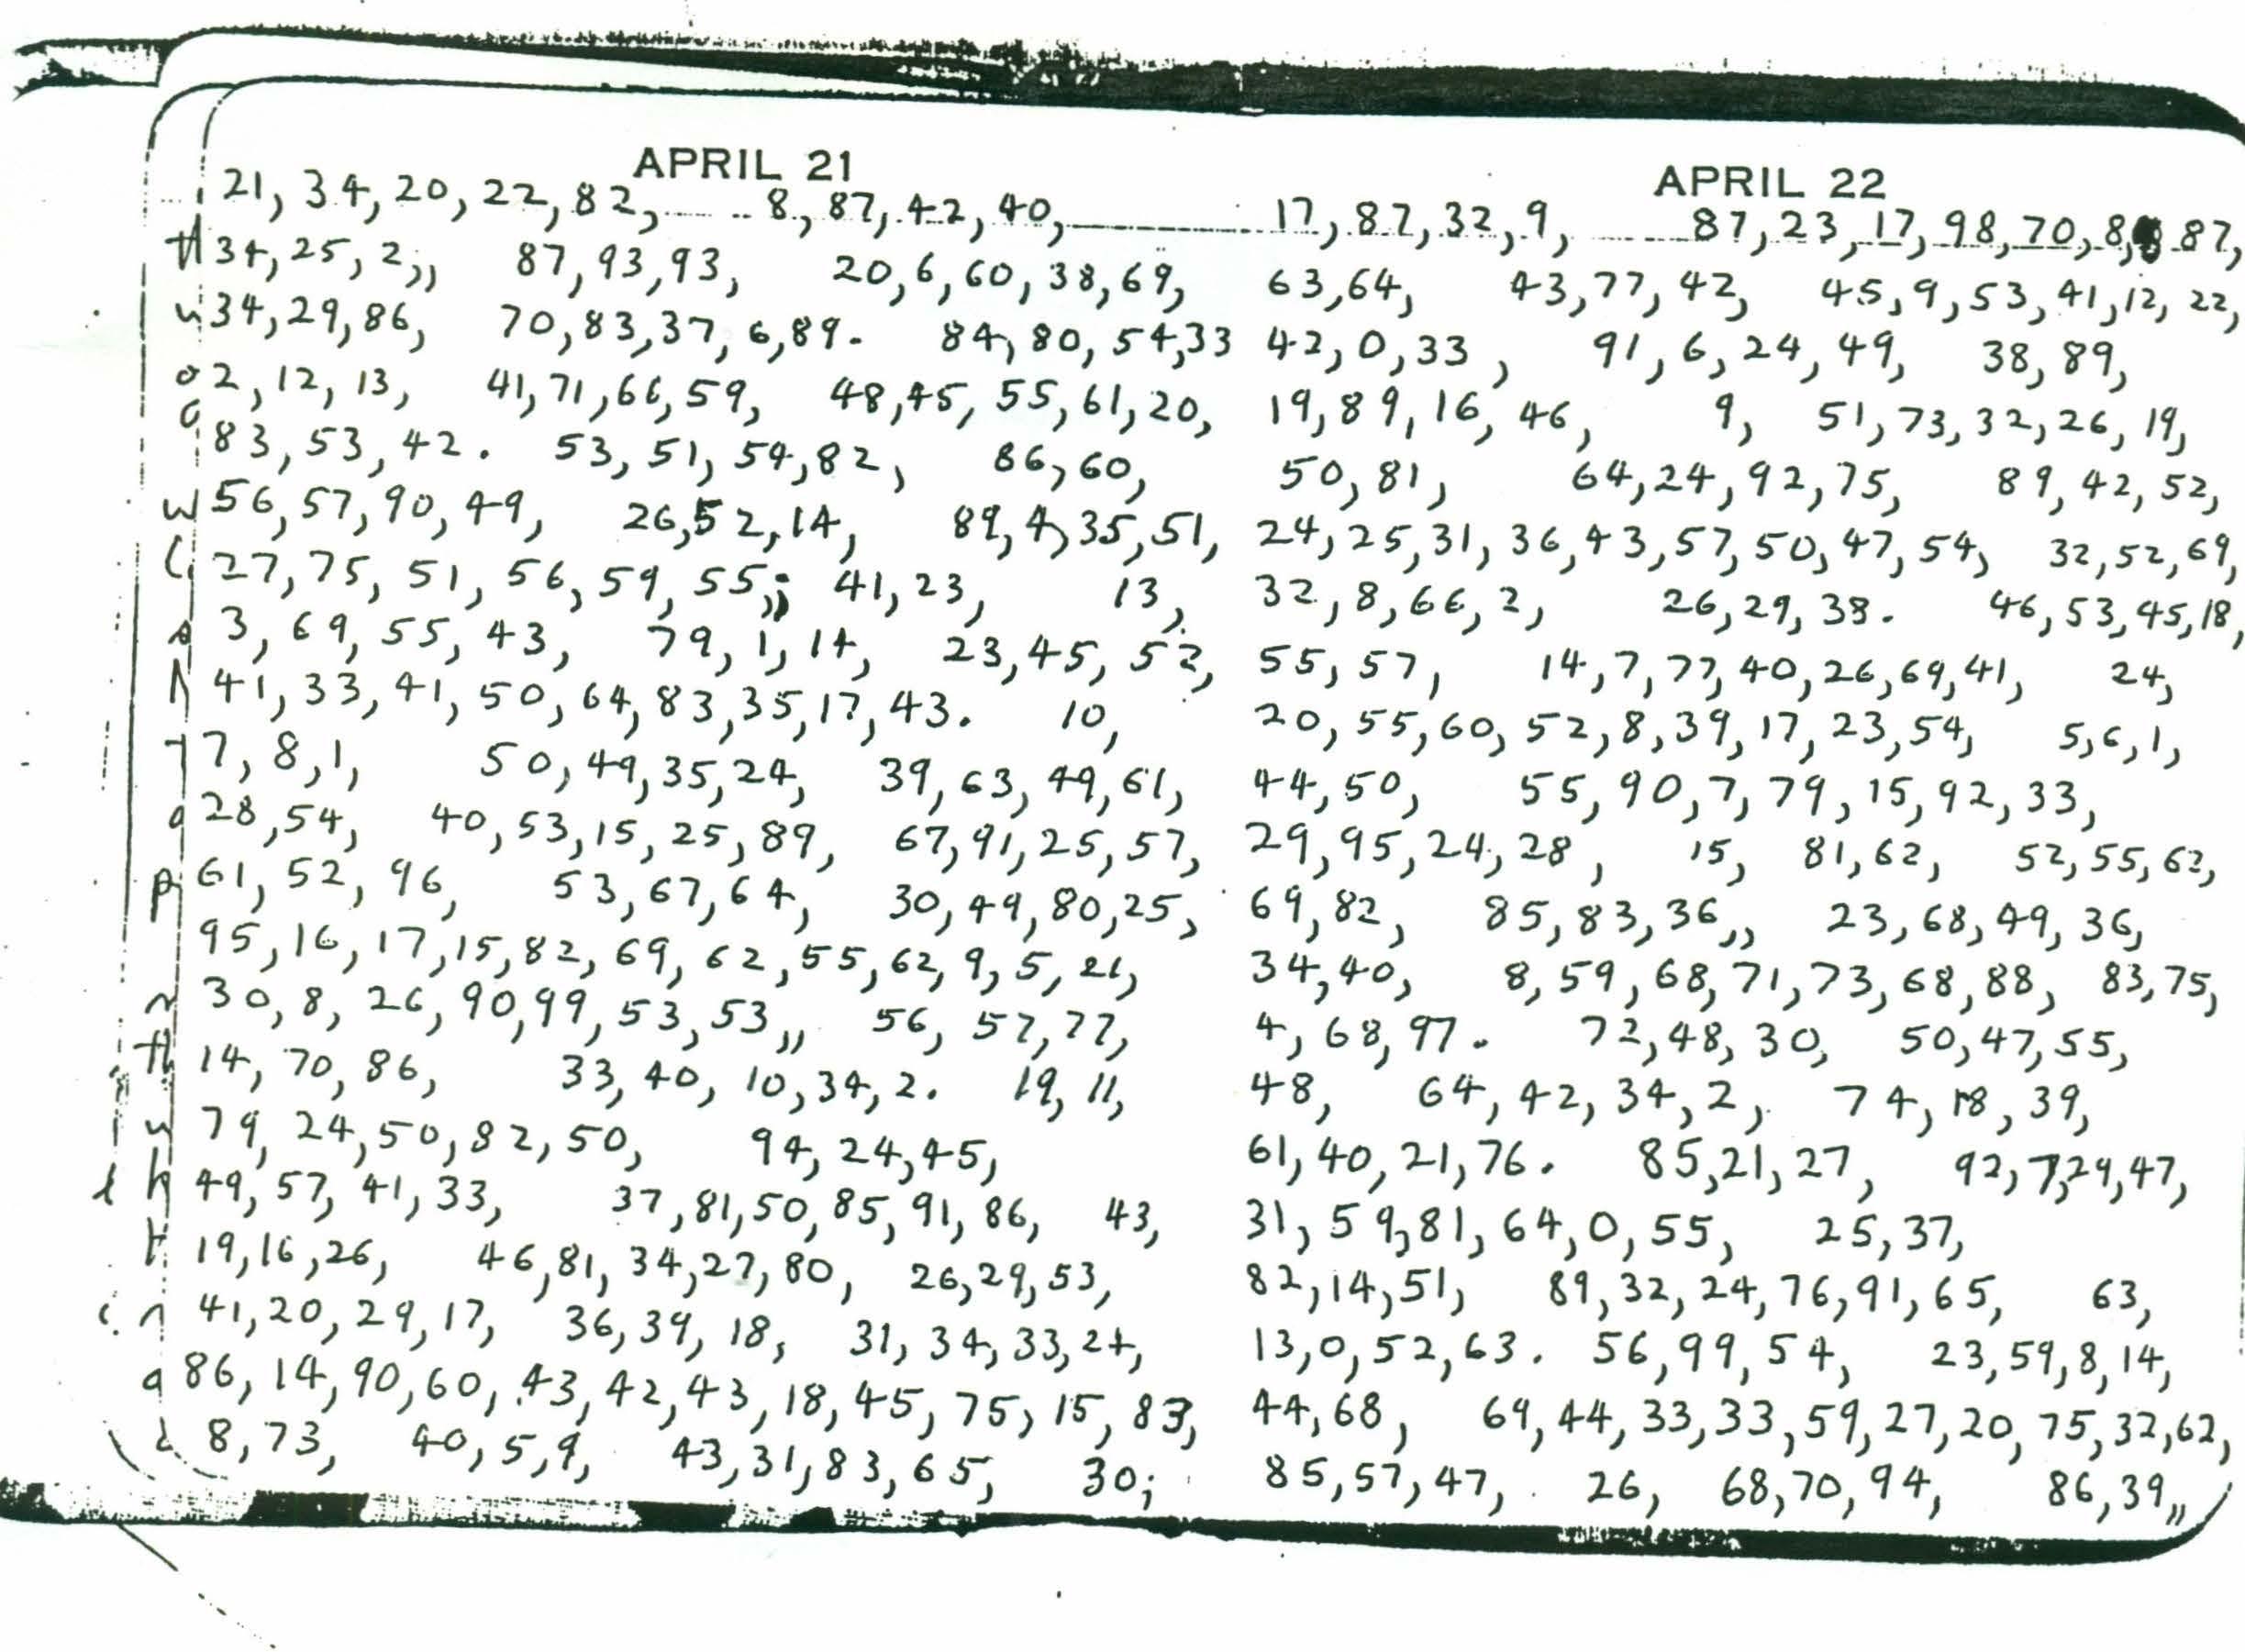 APRIL 21
21, 34, 20, 22, 82, 8, 87, 42, 40,
34, 25, 2,, 87, 93, 93, 20, 6, 60, 38, 69,
34, 29, 86, 70, 83, 37, 6, 89. 84, 80, 54, 33
2, 12, 13, 41, 71, 66, 59, 48, 45, 55, 61, 20,
83, 53, 42. 53, 51, 54, 82, 86, 60,
w 56, 57, 90, 49, 26, 52, 14, 89, 4, 35, 51,
27, 75, 51, 56, 59, 55,; 41, 23, 13,
3, 69, 55, 43, 79, 1, 14, 23, 45, 52,
41, 33, 41, 50, 64, 83, 35, 17, 43. 10,
7, 8, 1, 50, 49, 35, 24, 39, 63, 49, 61,
28, 54, 40, 53, 15, 25, 89, 67, 91, 25, 57,
p 61, 52, 96, 53, 67, 64, 30, 49, 80, 25,
95, 16, 17, 15, 82, 69, 62, 55, 62, 9, 5, 21,
30, 8, 26, 90, 99, 53, 53,, 56, 57, 77,
th 14, 70, 86, 33, 40, 10, 34, 2. 19, 11,
79, 24, 50, 82, 50, 94, 24, 45,
h 49, 57, 41, 33, 37, 81, 50, 85, 91, 86, 43,
t 19, 16, 26, 46, 81, 34, 27, 80, 26, 29, 53,
n 41, 20, 29, 17, 36, 39, 18, 31, 34, 33, 24,
a 86, 14, 90, 60, 43, 42, 43, 18, 45, 75, 15, 83,
8, 73, 40, 5, 9, 43, 31, 83, 65, 30;
APRIL 22
17, 87, 32, 9, 87, 23, 17, 98, 70, 8, 87,
63, 64, 43, 77, 42, 45, 9, 53, 41, 12, 22,
42, 0, 33, 91, 6, 24, 49, 38, 89,
19, 89, 16, 46, 9, 51, 73, 32, 26, 19,
50, 81, 64, 24, 92, 75, 89, 42, 52,
24, 25, 31, 36, 43, 57, 50, 47, 54, 32, 52, 69,
32, 8, 66, 2, 26, 29, 38. 46, 53, 45, 18,
55, 57, 14, 7, 77, 40, 26, 69, 41, 24,
20, 55, 60, 52, 8, 39, 17, 23, 54, 5, 6, 1,
44, 50, 55, 90, 7, 79, 15, 92, 33,
29, 95, 24, 28, 15, 81, 62, 52, 55, 62,
69, 82, 85, 83, 36,, 23, 68, 49, 36,
34, 40, 8, 59, 68, 71, 73, 68, 88, 83, 75,
4, 68, 97. 72, 48, 30, 50, 47, 55,
48, 64, 42, 34, 2, 74, 18, 39,
61, 40, 21, 76. 85, 21, 27, 92, 7, 29, 47,
31, 59, 81, 64, 0, 55, 25, 37,
82, 14, 51, 89, 32, 24, 76, 91, 65, 63,
13, 0, 52, 63. 56, 99, 54, 23, 59, 8, 14,
44, 68, 69, 44, 33, 33, 59, 27, 20, 75, 32, 62,
85, 57, 47, 26, 68, 70, 94, 86, 39,,